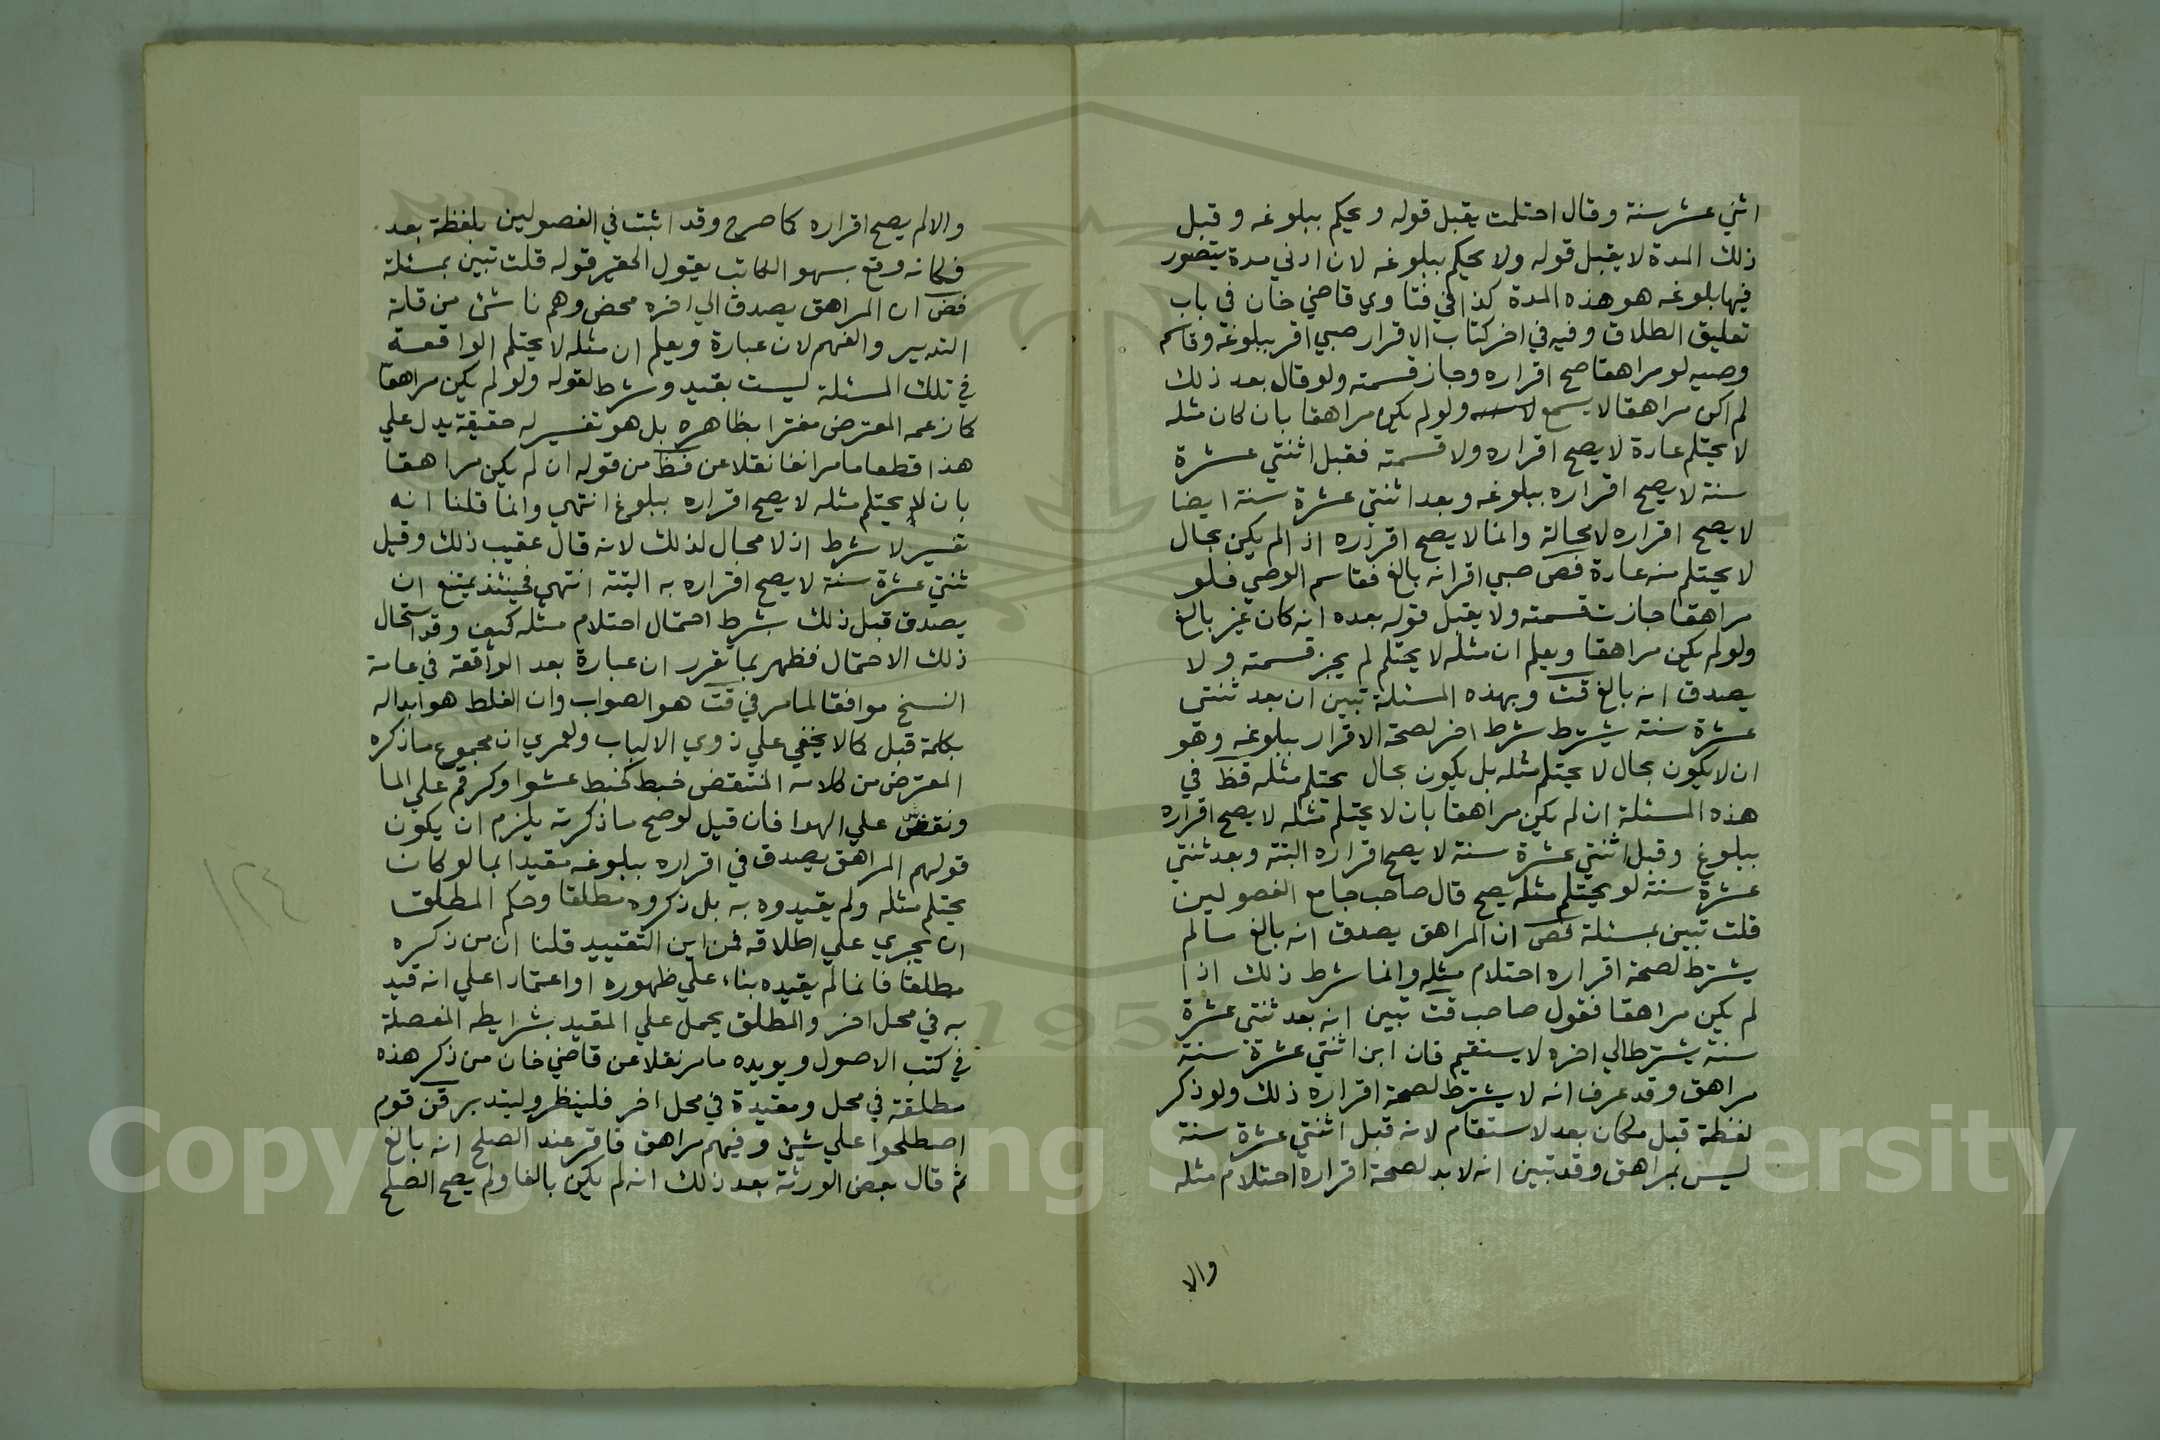 اثني عشر سنة وقال احتلمت يقبل قوله ويحكم ببلوغه وقبل
ذلك المدة لا يقبل قوله ولا يحكم ببلوغه لان ادني مدة يتصور
فيها بلوغه هو هذه المدة كذا في فتاوي قاضي خان في باب
تعليق الطلاق وفيه في اخر كتاب الاقرار صبي اقر ببلوغه وقاسم
وصيه لو مراهقا صح اقراره وجاز قسمته ولو قال بعد ذلك
لم اكن مراهقا لا يسمع ولو لم يكن مراهقا بان كان مثله
لا يحتلم عادة لا يصح اقراره ولا قسمته فقبل اثنتي عشرة
سنة لا يصح اقراره ببلوغه وبعد اثنتي عشرة سنة ايضا
لا يصح اقراره لا محالة وانما لا يصح اقراره اذا لم يكن بحال
لا يحتلم منه عادة فص صبي اقر انه بالغ فقاسم الوصي فلو
مراهقا جازت قسمته ولا يقبل قوله بعده انه كان غير بالغ
ولو لم يكن مراهقا ويعلم ان مثله لا يحتلم لم يجز قسمته ولا
يصدق انه بالغ قت وبهذه المسئلة تبين ان بعد ثنتي
عشرة سنة يشترط شرط اخر لصحة الاقرار ببلوغه وهو
ان لا يكون بحال لا يحتلم مثله بل يكون بحال يحتلم مثله قظ في
هذه المسئلة ان لم يكن مراهقا بان لا يحتلم مثله لا يصح اقراره
ببلوغ وقبل اثنتي عشرة سنة لا يصح اقراره البتة وبعد ثنتي
عشرة سنة لو يحتلم مثله يصح قال صاحب جامع الفصولين
قلت تبين بمسئلة فص ان المراهق يصدق انه بالغ سالم
يشترط لصحة اقراره احتلام مثله وانما شرط ذلك اذا
لم يكن مراهقا فقول صاحب قت تبين انه بعد ثنتي عشرة
سنة يشترط الي اخره لا يستقيم فان ابن اثنتي عشرة سنة
مراهق وقد عرف انه لا يشترط لصحة اقراره ذلك ولو ذكر
لفظة قبل مكان بعد لاستقام لانه قبل اثنتي عشرة سنة
ليس بمراهق وقد تبين انه لا بد لصحة اقراره احتلام مثله
والا
والا لم يصح اقراره كما صرح وقد اثبت في الفصولين بلفظة بعد
فكانه وقع سهو الكاتب يقول الحقير قوله قلت تبين بمسئلة
فص ان المراهق يصدق الي اخره محض وهم ناشئ من قلة
التدبير والفهم لان عبارة ويعلم ان مثله لا يحتلم الواقعة
في تلك المسئلة ليست بقيد وشرط لقوله ولو لم يكن مراهقا
كما زعمه المعترض مغترا بظاهره بل هو تفسير له حقيقة يدل علي
هذا قطعا ما مر انفا نقلا عن قظ من قوله ان لم يكن مراهقا
بان لا يحتلم مثله لا يصح اقراره ببلوغ انتهي وانما قلنا انه
تفسير لا شرط اذ لا مجال لذلك لانه قال عقيب ذلك وقبل
ثنتي عشرة سنة لا يصح اقراره به البتة انتهي فحينئذ يمتنع ان
يصدق قبل ذلك بشرط احتمال احتلام مثله كيف وقد استحال
ذلك الاحتمال فظهر بما تقرر ان عبارة بعد الواقعة في عامة
النسخ موافقا لما مر في قت هو الصواب وان الغلط هو ابداله
بكلمة قبل كما لا يخفي علي ذوي الالباب ولعمري ان مجموع ما ذكره
المعترض من كلامه المنتقض خبط كخبط عشوا وكرقم علي الما
ونقش علي الهوا فان قيل لو صح ما ذكرته يلزم ان يكون
قولهم المراهق يصدق في اقراره ببلوغه مقيدا بما لو كان
يحتلم مثله ولم يقيدوه به بل ذكروه مطلقا وحكم المطلق
ان يجري علي اطلاقه فمن اين التقييد قلنا ان من ذكره
مطلقا فانما لم يقيده بناء علي ظهوره او اعتمادا علي انه قيد
به في محل اخر والمطلق يحمل علي المقيد بشرايطه المفصلة
في كتب الاصول ويويده ما مر نقلا عن قاضي خان من ذكر هذه
مطلقة في محل ومقيدة في محل اخر فلينظر وليتدبر قن قوم
اصطلحوا علي شيئ وفيهم مراهق فاقر عند الصلح انه بالغ
ثم قال بعض الورثة بعد ذلك انه لم يكن بالغا ولم يصح الصلح
١٢٤
1957
Copyright © King Saud University